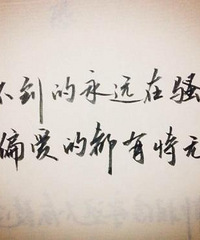 不到的永远在骚
偏爱的都有恃无